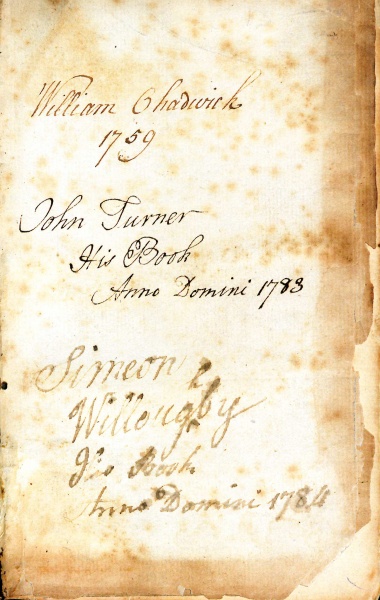 William Chadwick
1759
John Turner
His Book
Anno Domini 1783
Simeon
Willougby
His Book
Anno Domini 1784